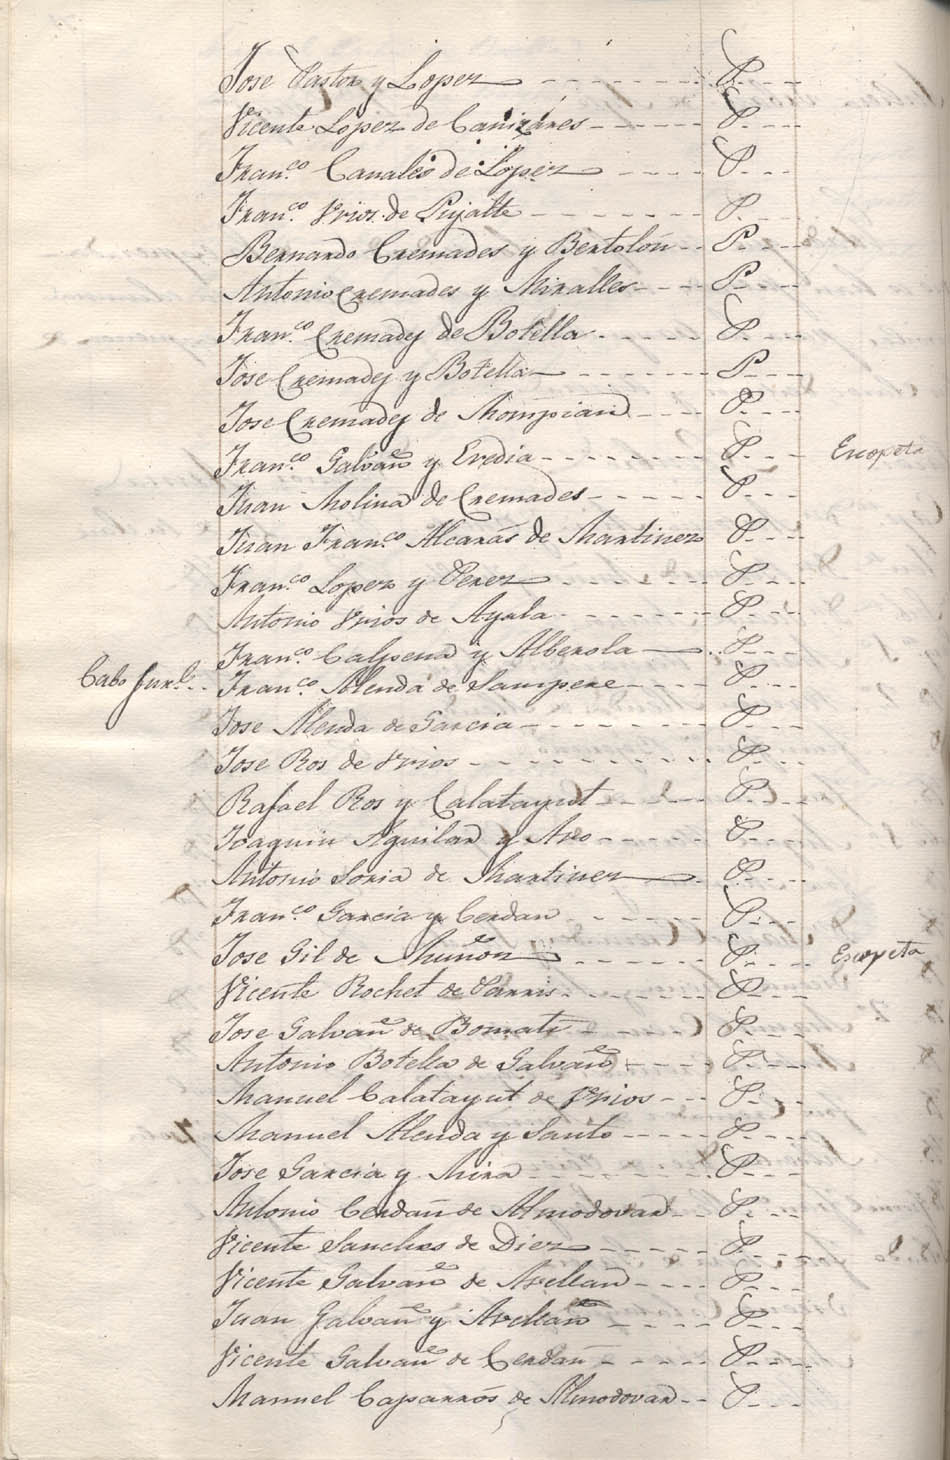 Jose Pastor y Lopez - - - - - - P - - -
Vicente Lopez de Cañizares - - - - - P - - -
Fran.co Canales de Lopez - - - - P - - -
Fran.co Vrios de Pujalte - - - - - - P - - -
Bernardo Cremades y Bertoloú - - P - - -
Antonio Cremades y Miralles - - - - P - - -
Fran.co Cremades de Botella - - - - - P - - -
Jose Cremades y Botella - - - - - - P - - -
Jose Cremades de Mompian - - - - P - - -
Fran.co Galvañ y Eredia - - - - - - P - - - Escopeta
Juan Molina de Cremades - - - - - P - - -
Juan Fran.co Alcarás de Martinez P - - -
Fran.co Lopez y Perez - - - - - - P - - -
Antonio Vrios de Ayala - - - - - - P - - -
Fran.co Calpena y Alberola - - P - - -
Cabo furl. - - Fran.co Alenda de Sampere - - - - P - - -
Jose Alenda de Garcia - - - - - - P - - -
Jose Ros de Vrios - - - - - - - - P - - -
Rafael Ros y Calatayut - - - - - P - - -
Joaquin Aguilar y Aro - - - - - - P - - -
Antonio Soria de Martinez - - P - - -
Fran.co Garcia y Cerdan - - - - - P - - -
Jose Gil de Muñoz - - - - - - P - - - Escopeta
Vicente Rochet de Parris - - - - - - P - - -
Jose Galvañ de Bomati - - - - - P - - -
Antonio Botella de Galvañ - - - - P - - -
Manuel Calatayut de Vrios - - - P - - -
Manuel Alenda y Santo - - - - - P - - -
Jose Garcia y Mira - - - - - - - P - - -
Antonio Cerdañ de Almodovar - - P - - -
Vicente Sanches de Diez - - - - - P - - -
Vicente Galvañ de Avellan - - - - P - - -
Juan Galvañ y Avellan - - - - - P - - -
Vicente Galvañ de Cerdañ - - - - - P - - -
Manuel Caparrós de Almodovar - - P - - -